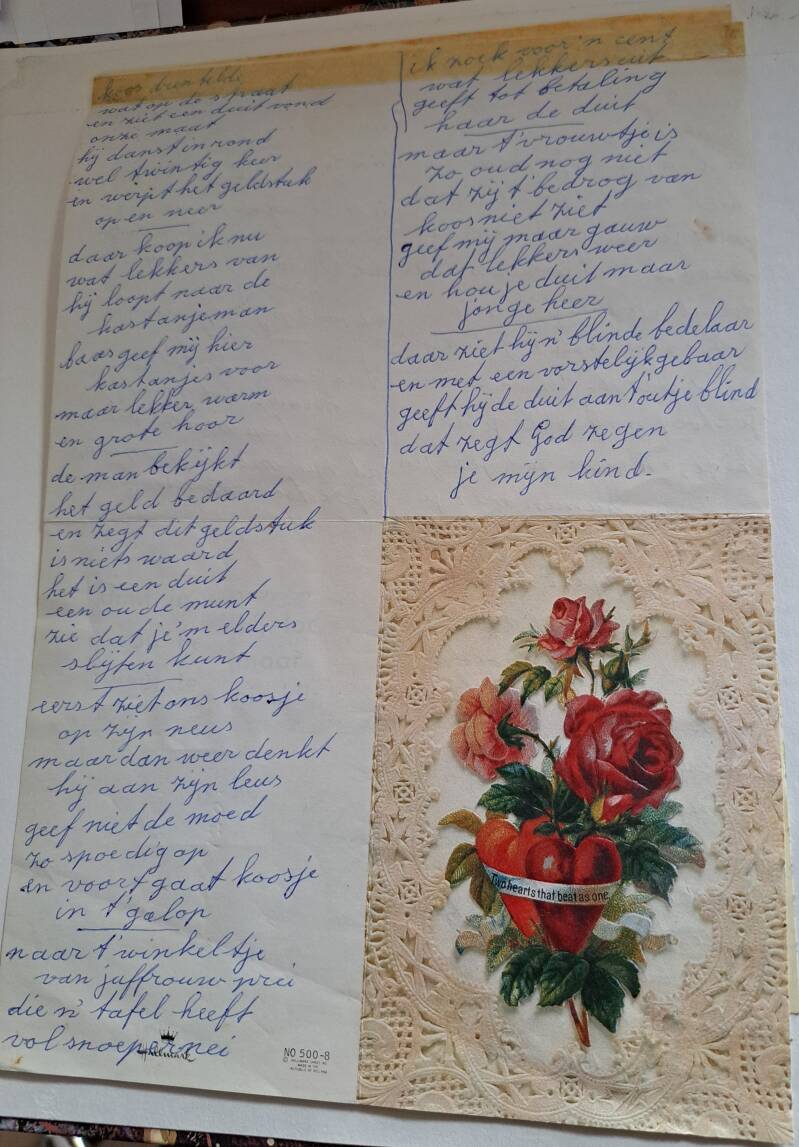 koos drentelde
wat op de straat
en ziet een duit vond
onze maat
hij danst in rond
wel twintig keer
en werpt het geldstuk
op en neer
daar koop ik nu
wat lekkers van
hij loopt naar de
kastanjeman
baas geef mij hier
kastanjes voor
maar lekker warm
en grote hoor
de man bekijkt
het geld bedaard
en zegt dit geldstuk
is niets waard
het is een duit
een oude munt
zie dat je 'm elders
slijten kunt
eerst ziet ons koosje
op zijn neus
maar dan weer denkt
hij aan zijn leus
geef niet de moed
zo spoedig op
en voort gaat koosje
in t' galop
naar t' winkeltje
van juffrouw prei
die n' tafel heeft
vol snoepernei
Hallmark
NO 500-8
ik zoek voor 'n cent
wat lekkers uit
geeft tot betaling
haar de duit
maar t' vrouwtje is
zo oud nog niet
dat zij t' bedrog van
koos niet ziet
geef mij maar gauw
dat lekkers weer
en hou je duit maar
jonge heer
daar ziet hij n' blinde bedelaar
en met een vorstelijk gebaar
geeft hij de duit aan t' outje blind
dat zegt God zegen
je mijn kind.
Two hearts that beat as one